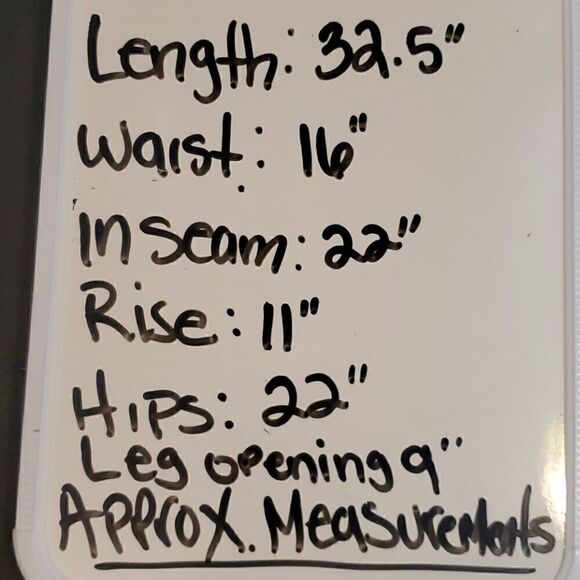 Length: 32.5"
Waist: 16"
Inseam: 22"
Rise: 11"
Hips: 22"
Leg opening 9"
Approx. Measurements